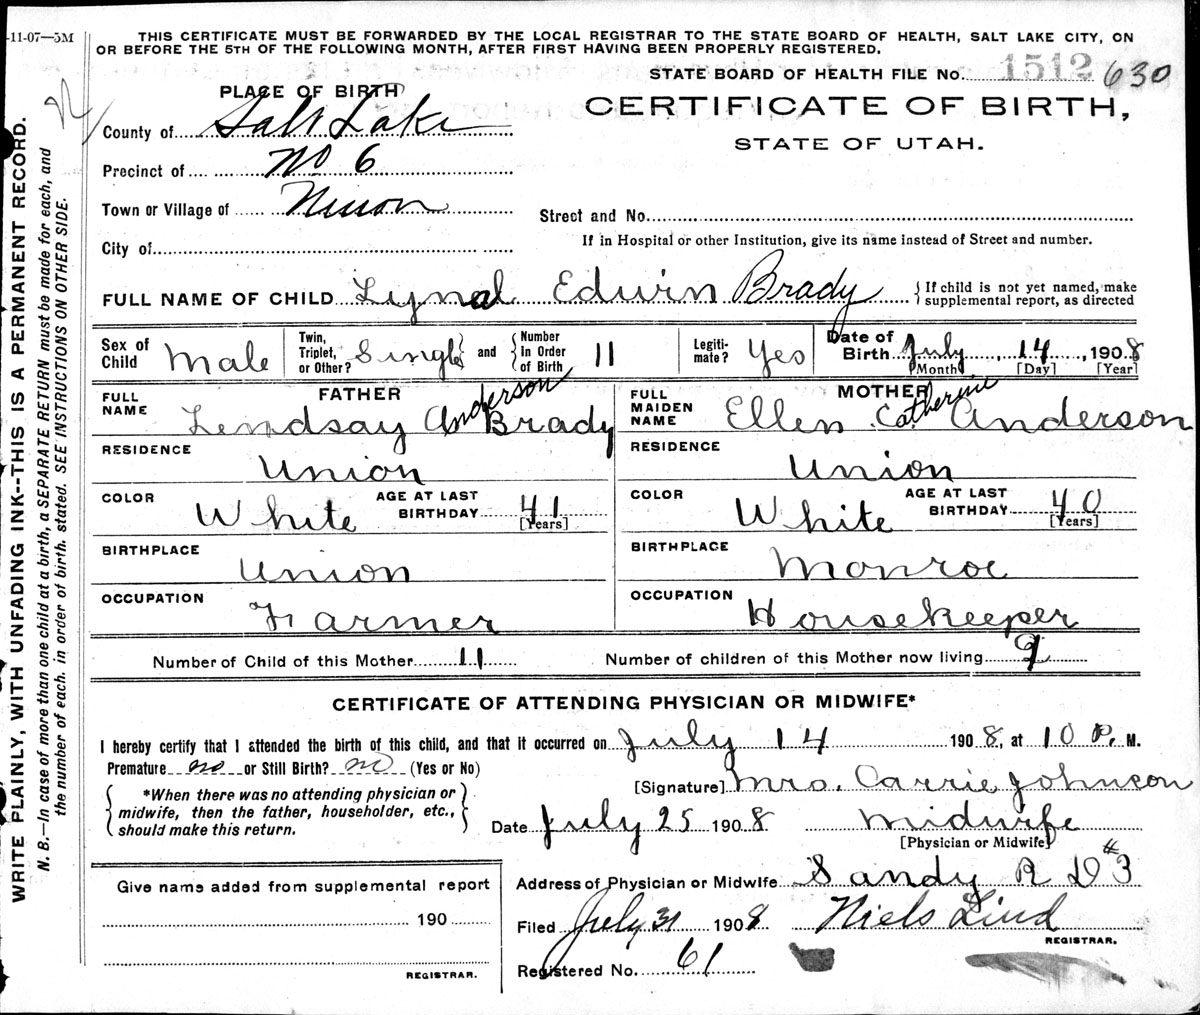 -11-07—5M
THIS CERTIFICATE MUST BE FORWARDED BY THE LOCAL REGISTRAR TO THE STATE BOARD OF HEALTH, SALT LAKE CITY, ON
OR BEFORE THE 5TH OF THE FOLLOWING MONTH, AFTER FIRST HAVING BEEN PROPERLY REGISTERED.
STATE BOARD OF HEALTH FILE No. 1512 630
PLACE OF BIRTH
CERTIFICATE OF BIRTH,
STATE OF UTAH.
County of Salt Lake
Precinct of No 6
Town or Village of Union
Street and No.
City of
If in Hospital or other Institution, give its name instead of Street and number.
FULL NAME OF CHILD Lynal Edwin Brady { If child is not yet named, make
supplemental report, as directed
Sex of Child Male Twin, Triplet, or Other? Single and Number in Order of Birth 11 Legiti- mate? Yes Date of Birth July, 14, 1908
[Month] [Day] [Year]
FATHER
MOTHER
FULL NAME Lendsay Anderson Brady
FULL MAIDEN NAME Ellen Catherine Anderson
RESIDENCE Union
RESIDENCE Union
COLOR White AGE AT LAST BIRTHDAY 41 [Years]
COLOR White AGE AT LAST BIRTHDAY 40 [Years]
BIRTHPLACE Union
BIRTHPLACE Monroe
OCCUPATION Farmer
OCCUPATION Housekeeper
Number of Child of this Mother 11 Number of children of this Mother now living 9
CERTIFICATE OF ATTENDING PHYSICIAN OR MIDWIFE*
I hereby certify that I attended the birth of this child, and that it occurred on July 14 1908, at 10 P. M.
Premature no or Still Birth? no (Yes or No)
[Signature] Mrs. Carrie Johnson
*When there was no attending physician or
midwife, then the father, householder, etc.,
should make this return.
Date July 25 1908 Midwife
[Physician or Midwife]
Give name added from supplemental report
190
REGISTRAR.
Address of Physician or Midwife Sandy R D #3
Filed July 31 1908 Niels Lind
REGISTRAR.
Registered No. 61
WRITE PLAINLY, WITH UNFADING INK--THIS IS A PERMANENT RECORD.
N. B.—In case of more than one child at a birth, a SEPARATE RETURN must be made for each, and
the number of each, in order of birth, stated. SEE INSTRUCTIONS ON OTHER SIDE.